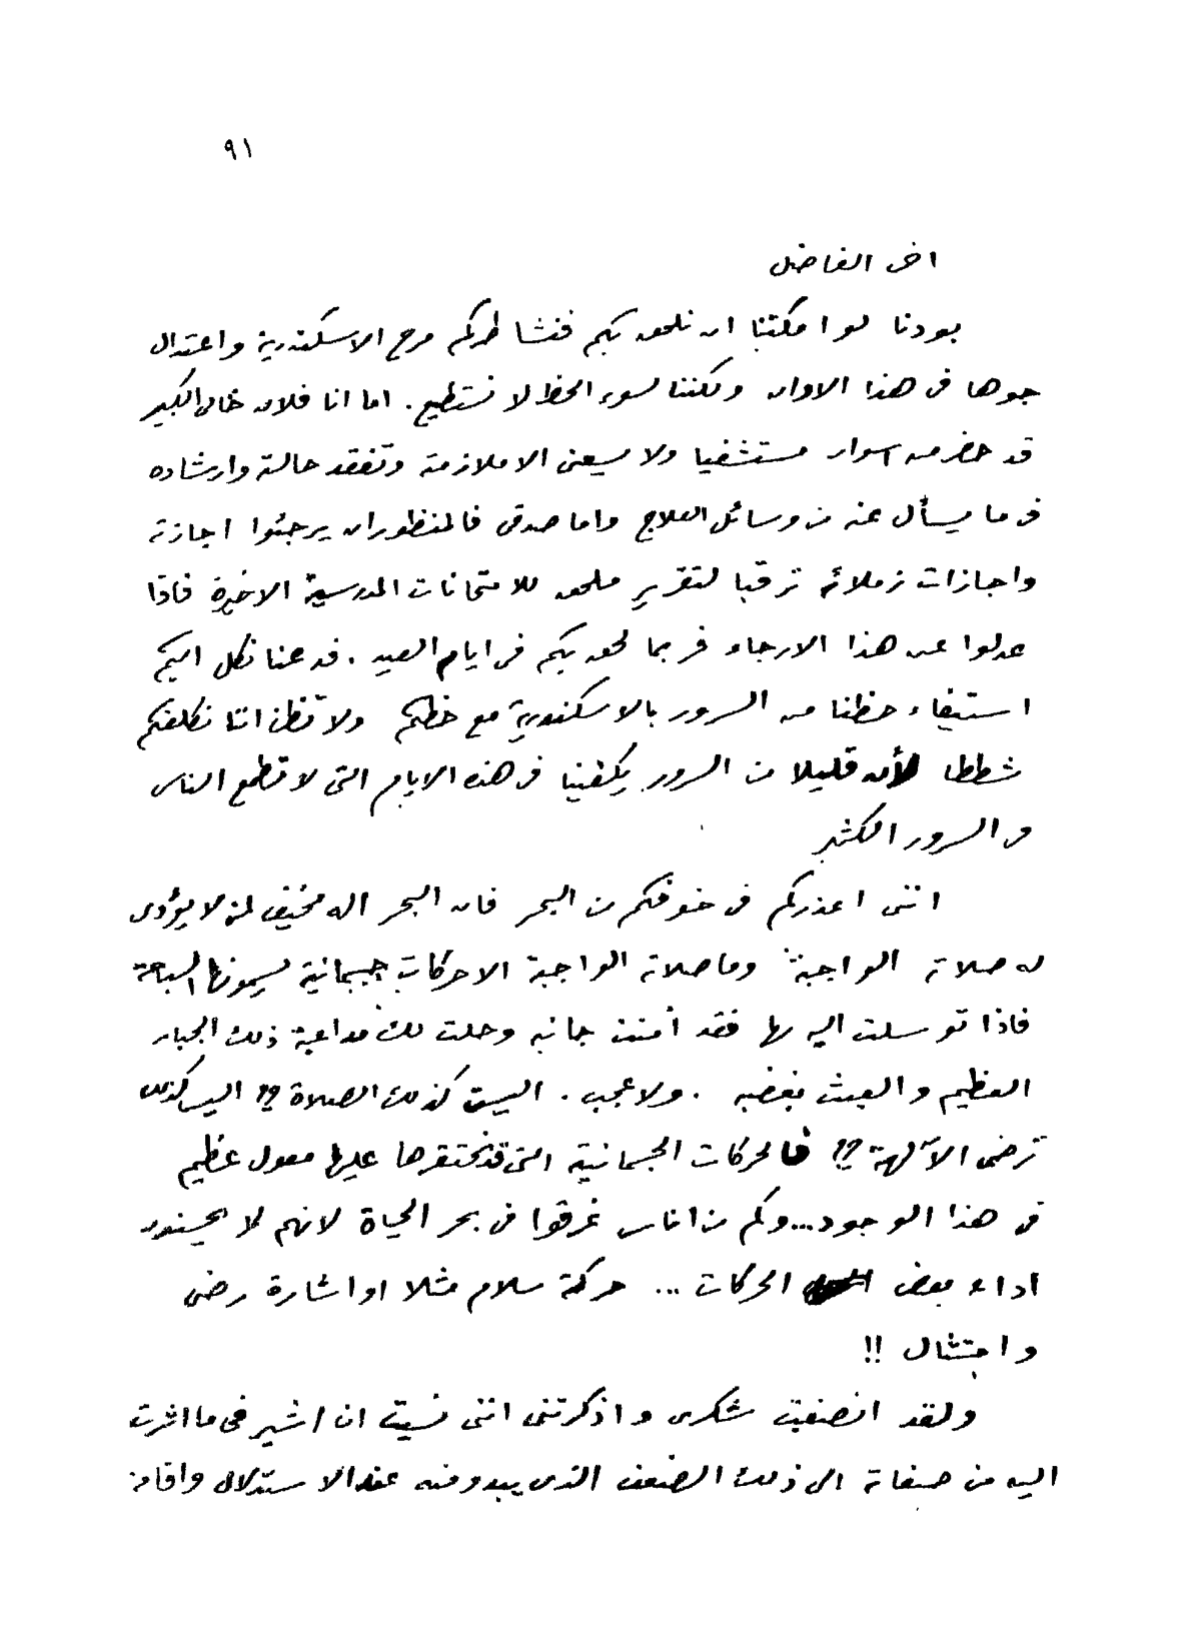 ٩١
اخى الفاضل
بودنا لو امكننا ان نلحق بكم فنشاطركم مرح الاسكندرية واعتدال
جوها فى هذا الاوان ولكننا لسوء الحظ لا نستطيع. اما انا فلان خالى الكبير
قد حضر من اسوان مستشفيا ولا يسعنى الا ملازمته وتفقد حالته وارشاده
فى ما يسأل عنه من وسائل العلاج واما صدقى فالمنظور ان يرجئوا اجازته
واجازات زملائه ترقبا لتقرير ملحق للامتحانات المدرسية الاخيرة فاذا
عدلوا عن هذا الارجاء فربما لحق بكم فى ايام العيد. فدعنا نكل اليكم
استيفاء حظنا من السرور بالاسكندرية مع حظكم ولا تظن اننا نكلفكم
شططا لأن قليلا من السرور يكفينا فى هذه الايام التى لا تطمع الناس
فى السرور الكثير
اننى اعذركم فى خوفكم من البحر فان البحر اله مخيف لمن لا يؤدى
له صلاته الواجبة وما صلاته الواجبة الا حركات جسمانية يسمونها السباحة
فاذا توسلت اليه بها فقد أمنت جانبه وحلت لك مداعبة ذلك الجبار
العظيم والعبث بغضبه. ولا عجب. اليست كذلك الصلاة؟! اليس كذلك
ترضى الآلهة؟! فالحركات الجسمانية التى قد نحتقرها عليها معول عظيم
فى هذا الوجود... وكم من اناس غرقوا فى بحر الحياة لانهم لا يحسنون
اداء بعض الحركات ... حركة سلام مثلا او اشارة رضى
وامتثال !!
ولقد انصفت شكرى واذكرتنى اننى نسيت ان اشير فى ما اشرت
اليه من صفاته الى ذلك الضعف الذى يبدو منه عند الاستدلال واقامة